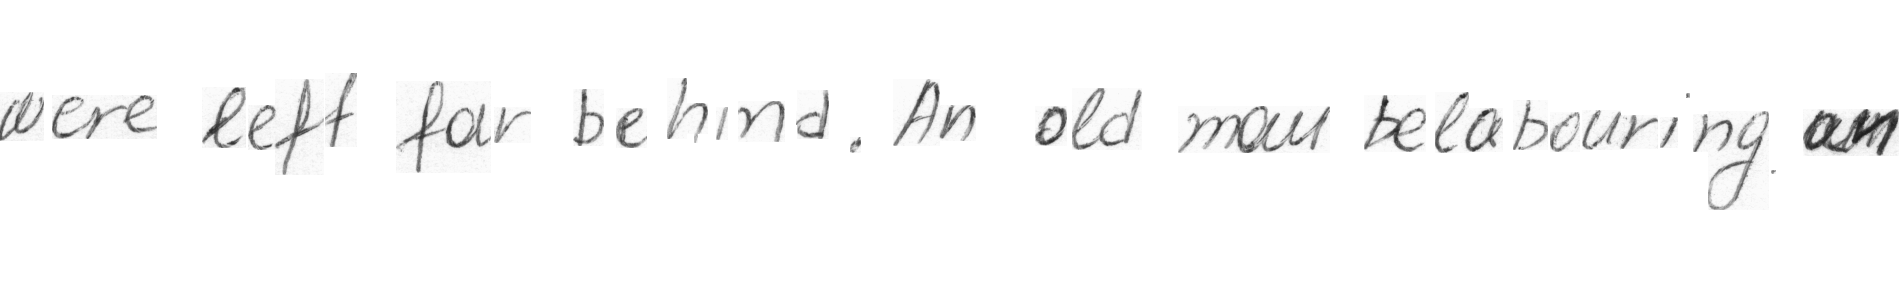 were left far behind. An old man belabouring an